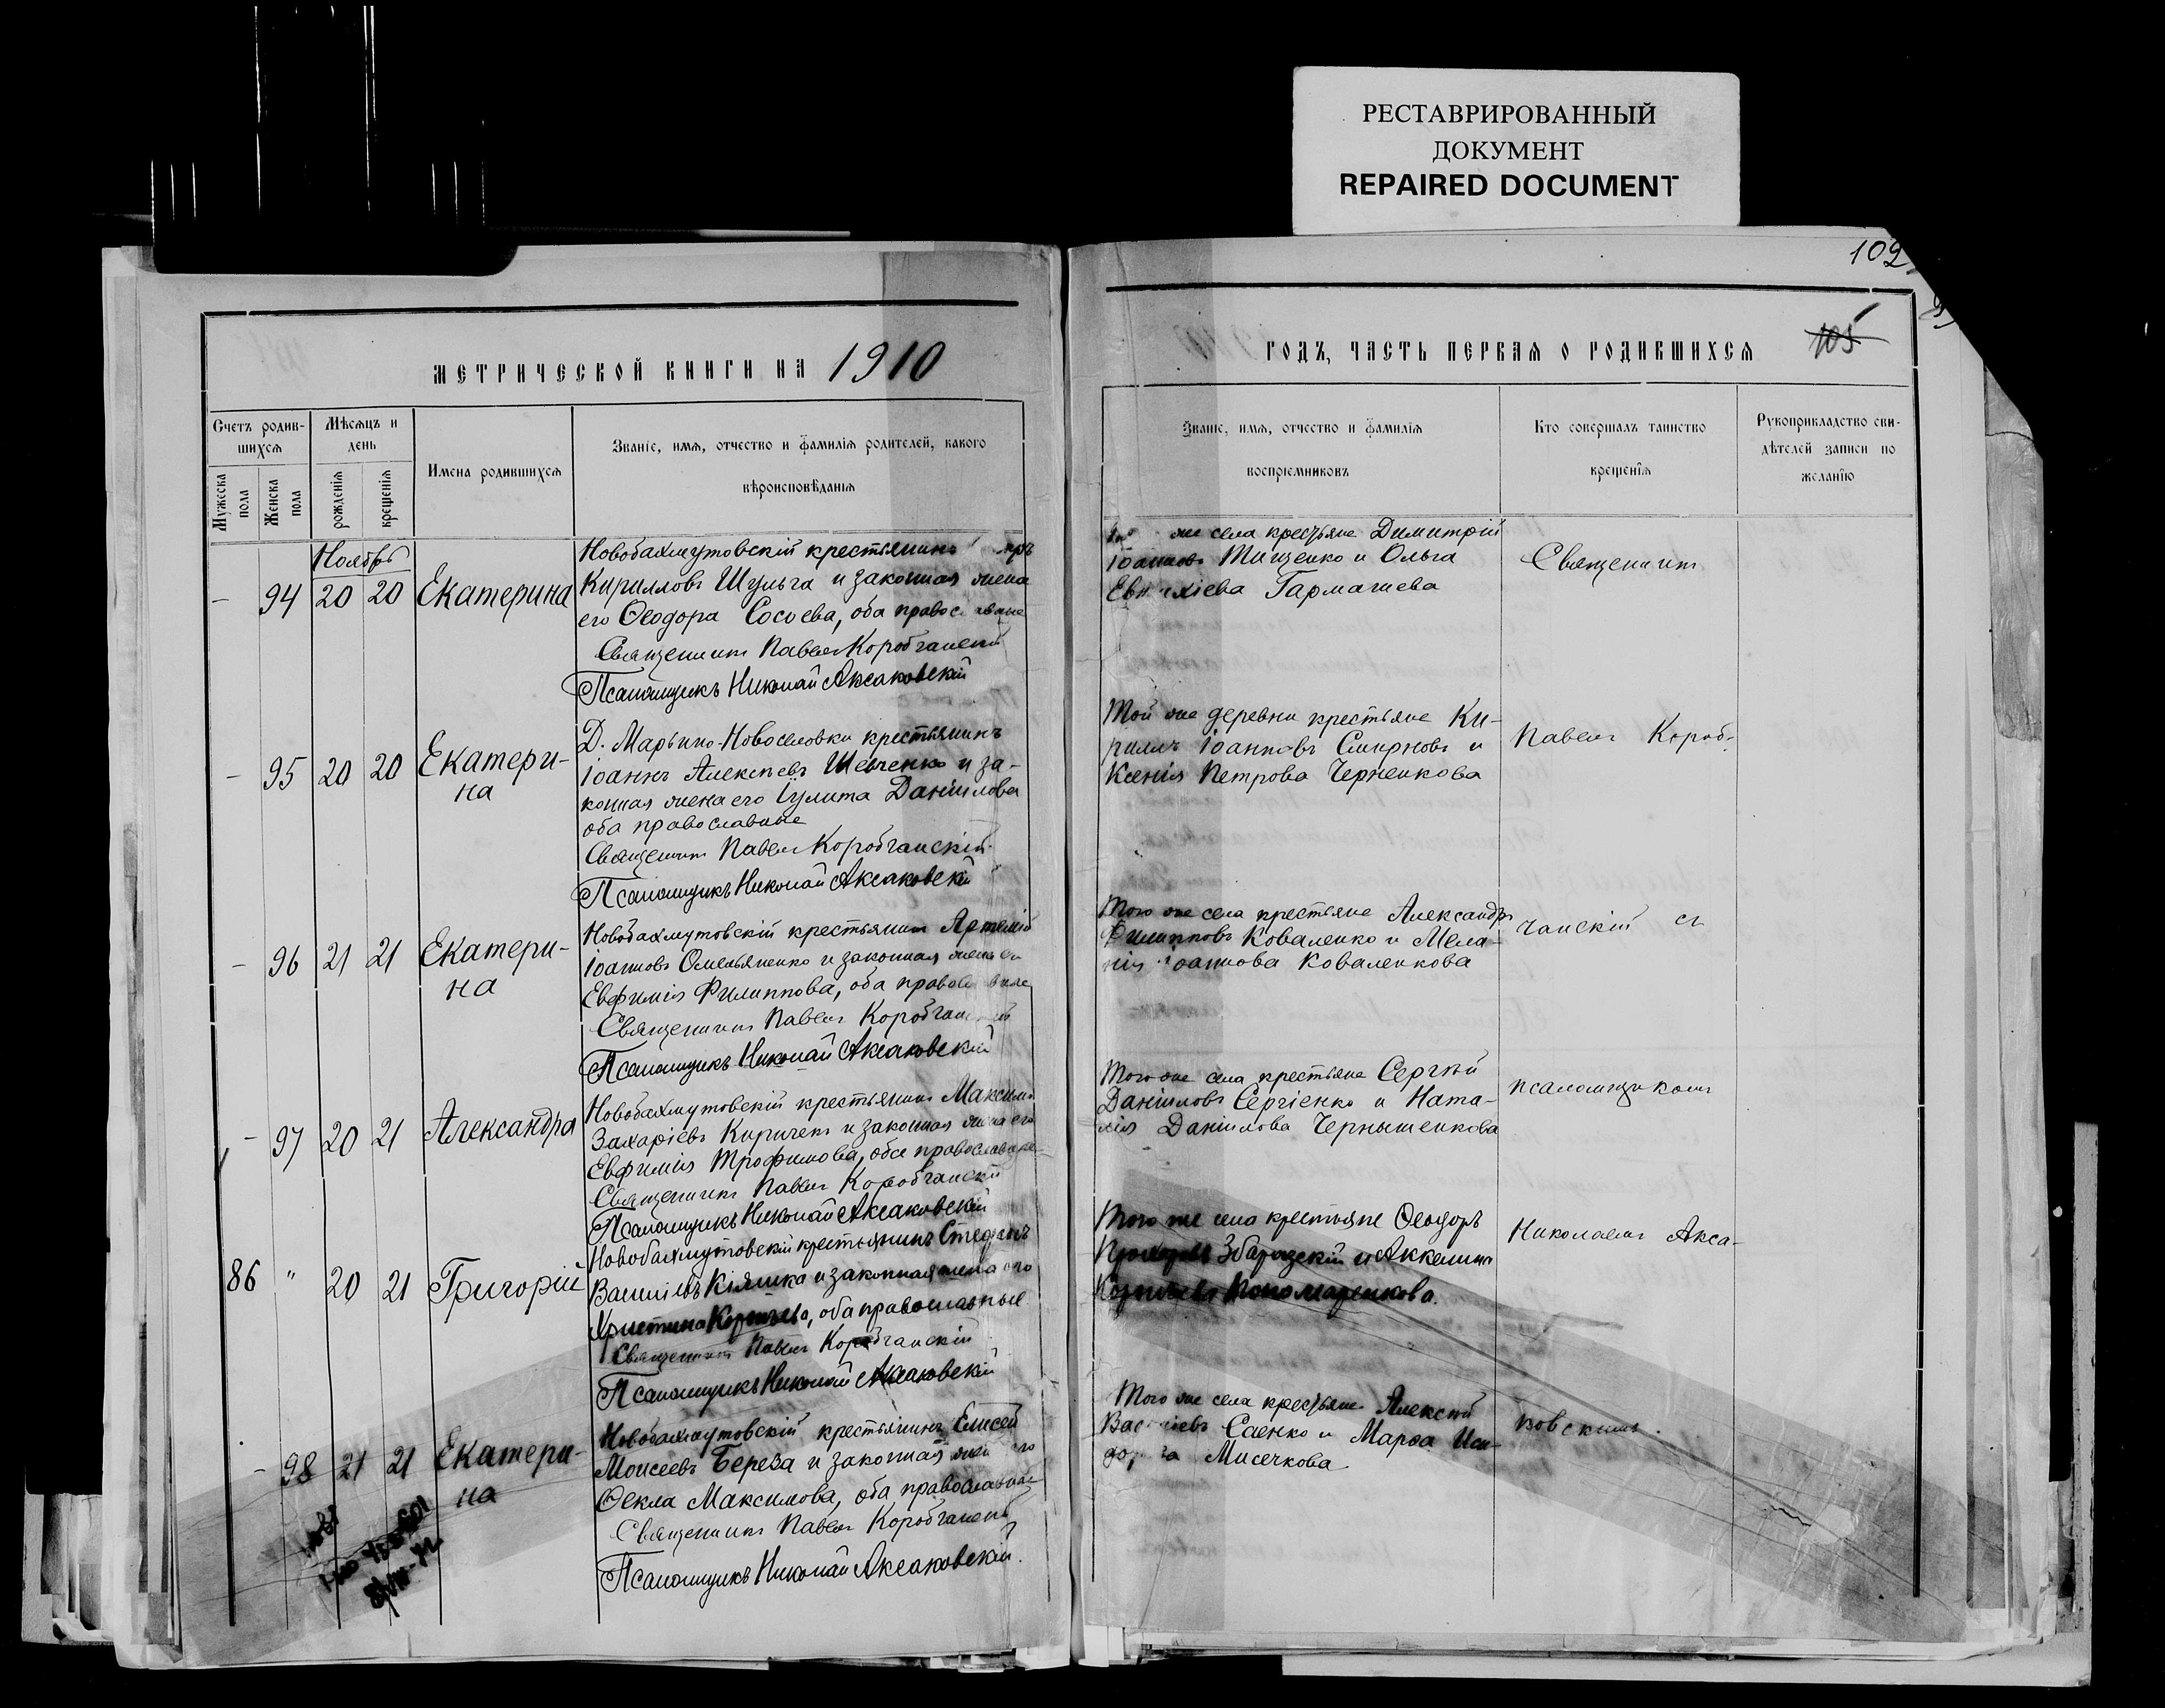 РЕСТАВРИРОВАННЫЙ
ДОКУМЕНТ
REPAIRED DOCUMENT
102
105
МЕТРИЧЕСКОЙ КНИГИ НА 1910
ГОДЪ, ЧАСТЬ ПЕРВАЯ О РОДИВШИХСЯ
Счетъ родив-
шихся
Мужеска
пола
Женска
пола
Мѣсяцъ и
день
рожденія
крещенія
Имена родившихся
Званіе, имя, отчество и фамилія родителей, какого
вѣроисповѣданія
Званіе, имя, отчество и фамилія
воспріемниковъ
Кто совершалъ таинство
крещенія
Рукоприкладство сви-
дѣтелей записи по
желанію
Ноябрь
– 94 20 20 Екатерина
Новобахмутовскій крестьянинъ
Кирилловъ Шульга и законная жена
его Ѳеодора Сосоева, оба православные
Священникъ Павелъ Коробчанскій
Псаломщикъ Николай Аксаковскій
же села крестьяне Димитрій
Іоанновъ Тищенко и Ольга
Гармашева
Священникъ
– 95 20 20 Екатери-
на
Д. Марьино-Новоселовки крестьянинъ
Іоаннъ Алексѣевъ Шевченко и за-
конная жена его Іулита Даніилова
оба православные
Священникъ Павелъ Коробчанскій
Псаломщикъ Николай Аксаковскій
Той же деревни крестьяне Ки-
риллъ Іоанновъ Смирновъ и
Ксенія Петрова Черненкова
Павелъ Короб-
– 96 21 21 Екатери-
на
Новобахмутовскій крестьянинъ Артемій
Іоанновъ Омельяненко и законная жена его
Евфимія Филиппова, оба православные
Священникъ Павелъ Коробчанскій
Псаломщикъ Николай Аксаковскій
Того же села крестьяне Александръ
Филипповъ Коваленко и Мела-
нія Іоаннова Коваленкова
чанскій съ
– 97 20 21 Александра
Новобахмутовскій крестьянинъ Максимъ
Захаріевъ Киричекъ и законная жена его
Евфимія Трофимова, оба православные
Священникъ Павелъ Коробчанскій
Псаломщикъ Николай Аксаковскій
Того же села крестьяне Сергѣй
Даніиловъ Сергіенко и Ната-
лія Даніилова Чернышенкова
псаломщикомъ
86 " 20 21 Григорій
Новобахмутовскій крестьянинъ Стефанъ
Василіевъ Кіяшка и законная жена его
Христина, оба православные
Священникъ Павелъ Коробчанскій
Псаломщикъ Николай Аксаковскій
Того же села крестьяне Ѳеодоръ
Збаразскій и Аккелина
Пономаренкова.
Николаемъ Акса-
– 98 21 21 Екатери-
на
Новобахмутовскій крестьянинъ Елисей
Моисеевъ Береза и законная жена его
Ѳекла Максимова, оба православные
Священникъ Павелъ Коробчанскій
Псаломщикъ Николай Аксаковскій.
Того же села крестьяне Алексѣй
Василіевъ Саенко и Марѳа Иси-
дорова Мисечкова
ковскимъ.